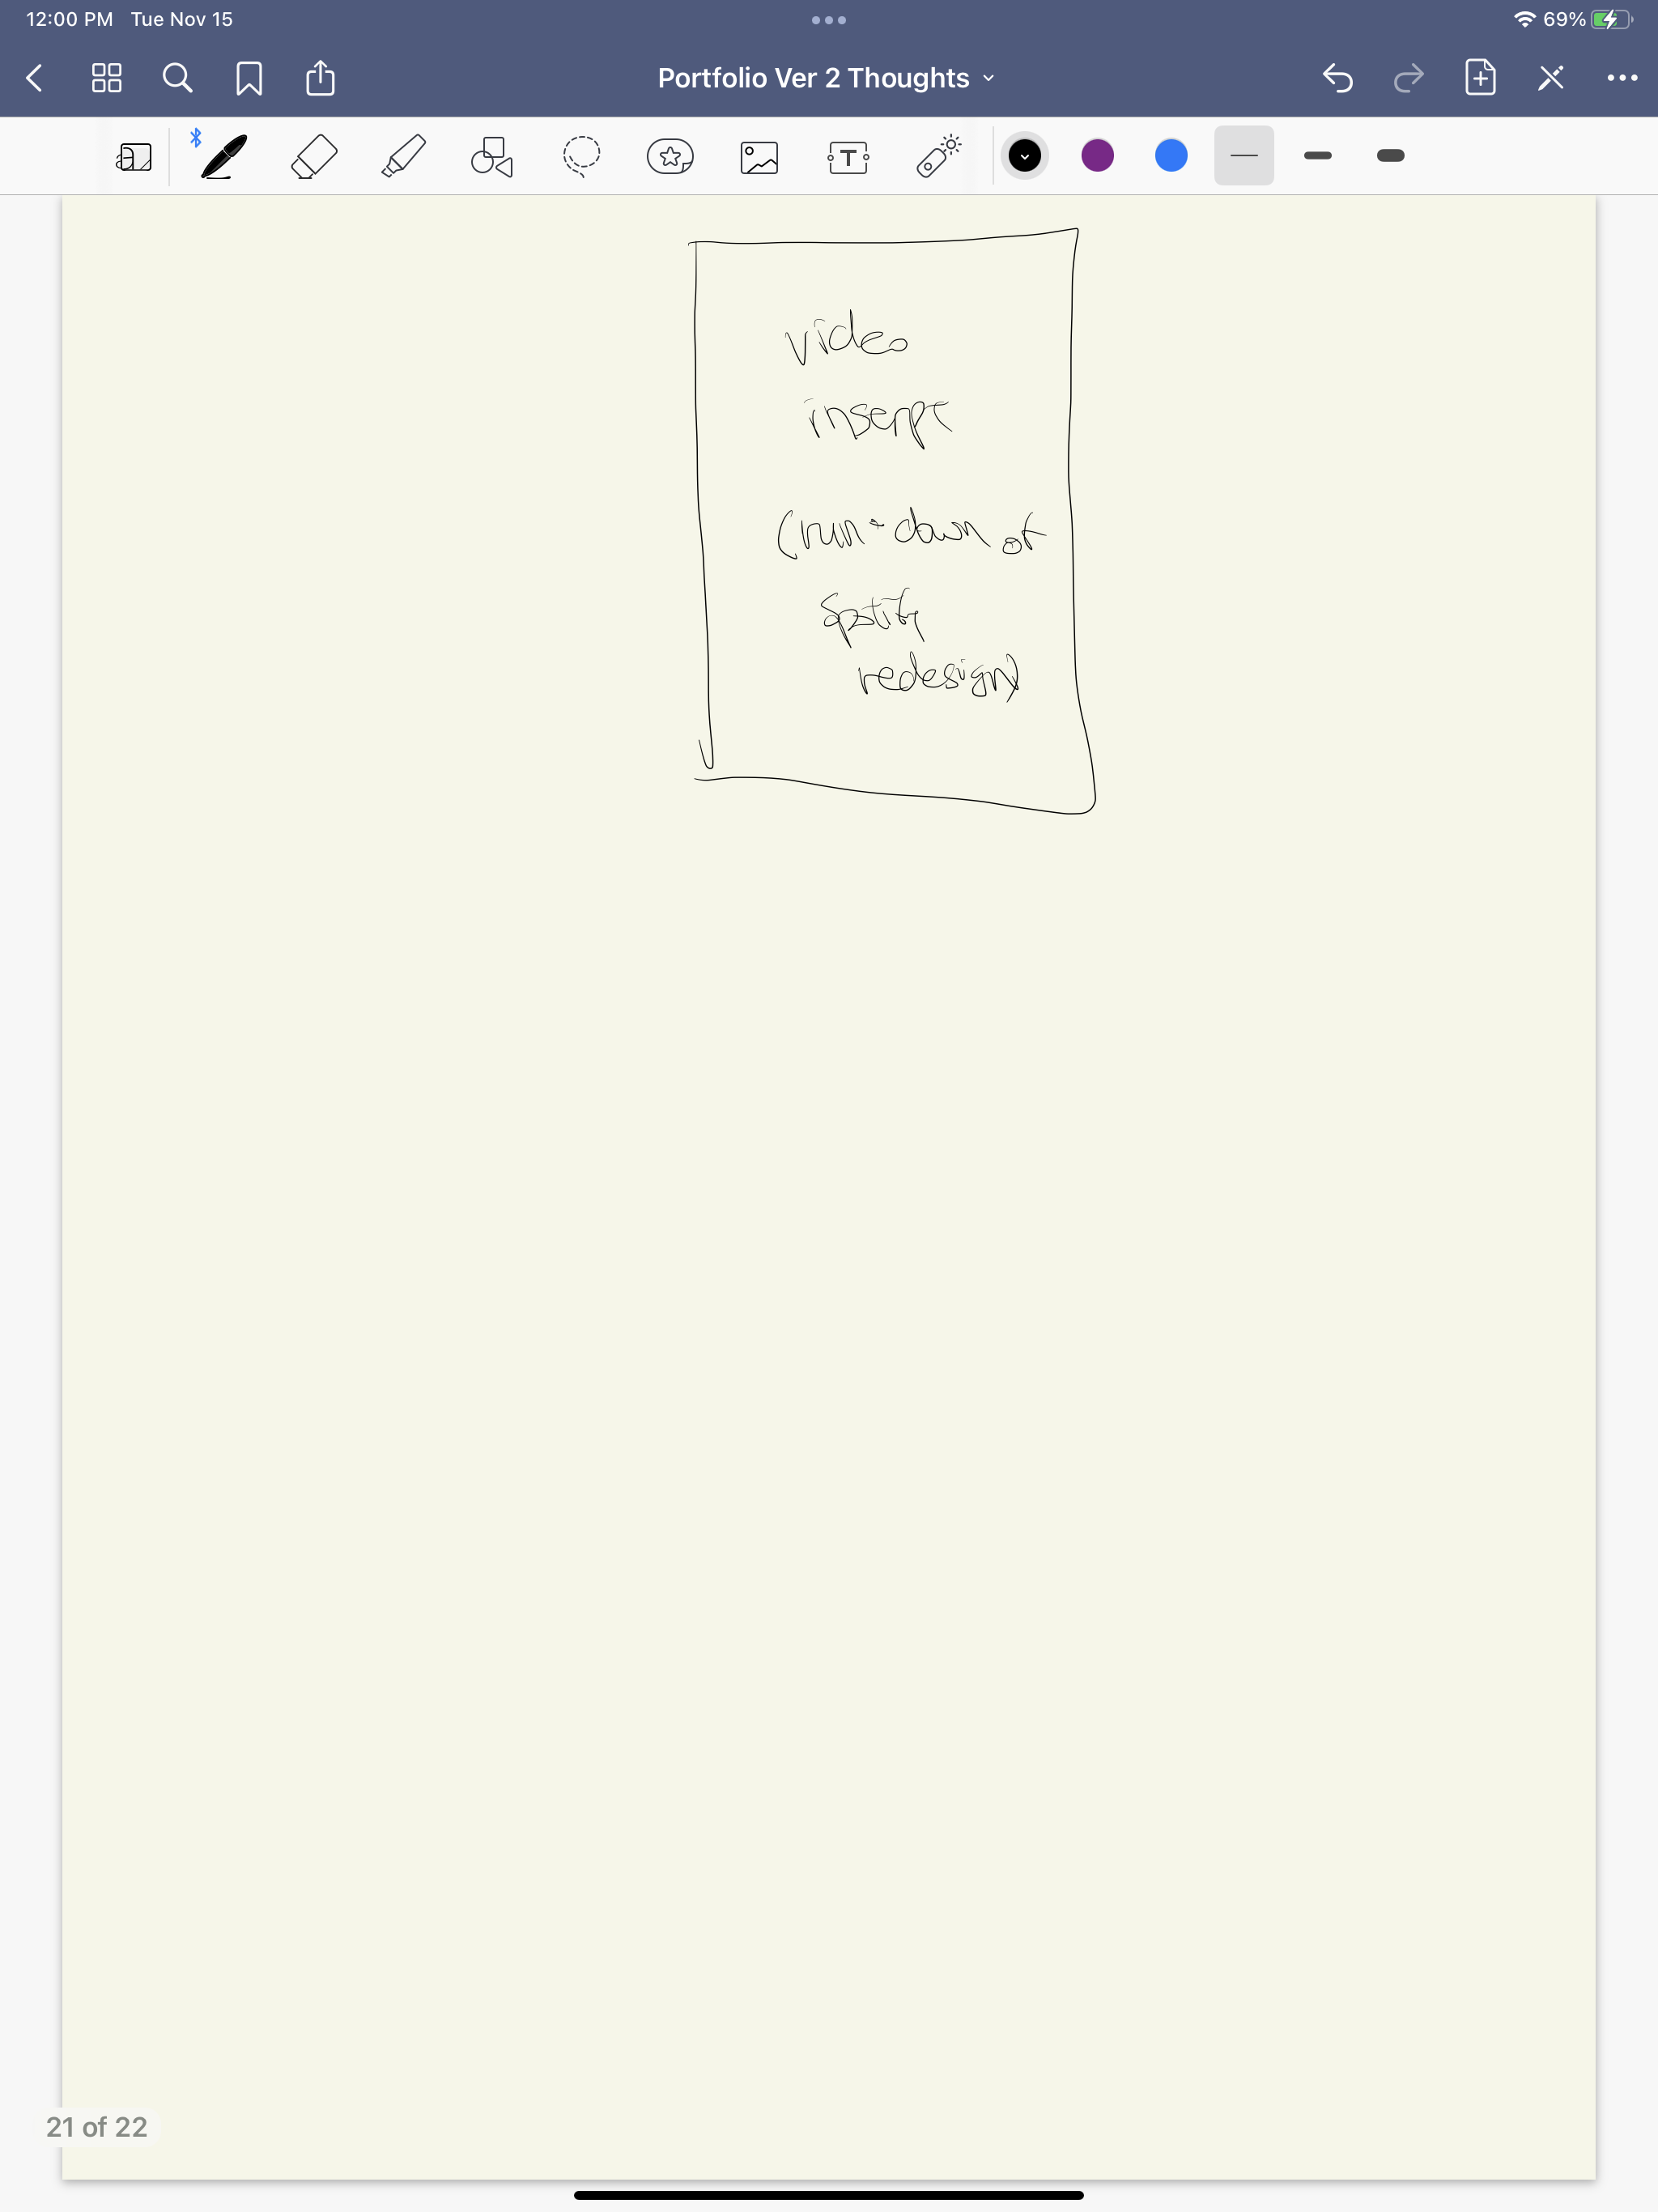 12:00 PM Tue Nov 15
69%
Portfolio Ver 2 Thoughts
video
insert
(run-down of
Spotify
redesign)
21 of 22